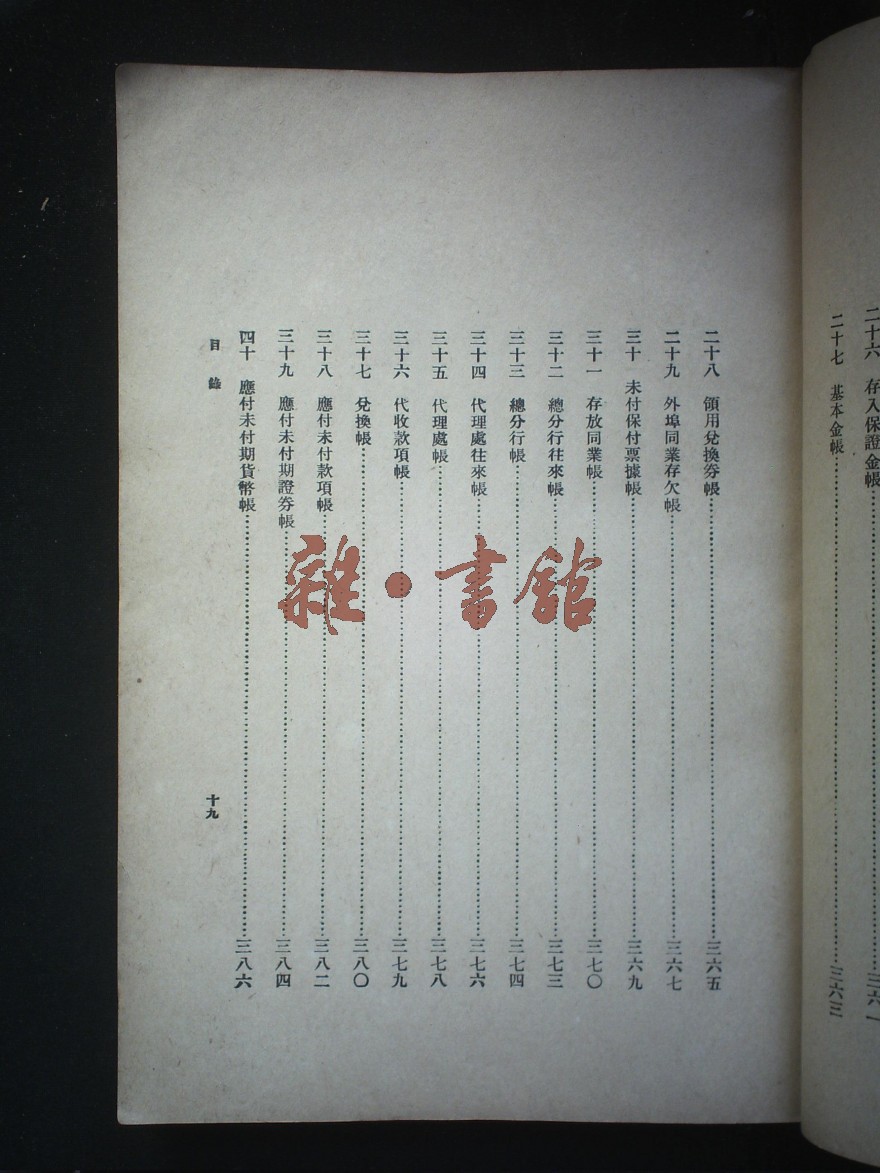 二十六 存入保證金帳……三六一
二十七 基本金帳……三六三
二十八 領用兌換券帳……三六五
二十九 外埠同業存欠帳……三六七
三十 未付保付票據帳……三六九
三十一 存放同業帳……三七〇
三十二 總分行往來帳……三七三
三十三 總分行帳……三七四
三十四 代理處往來帳……三七六
三十五 代理處帳……三七八
三十六 代收款項帳……三七九
三十七 兌換帳……三八〇
三十八 應付未付款項帳……三八二
三十九 應付未付期證券帳……三八四
四十 應付未付期貨幣帳……三八六
目錄
十九
雜·書館